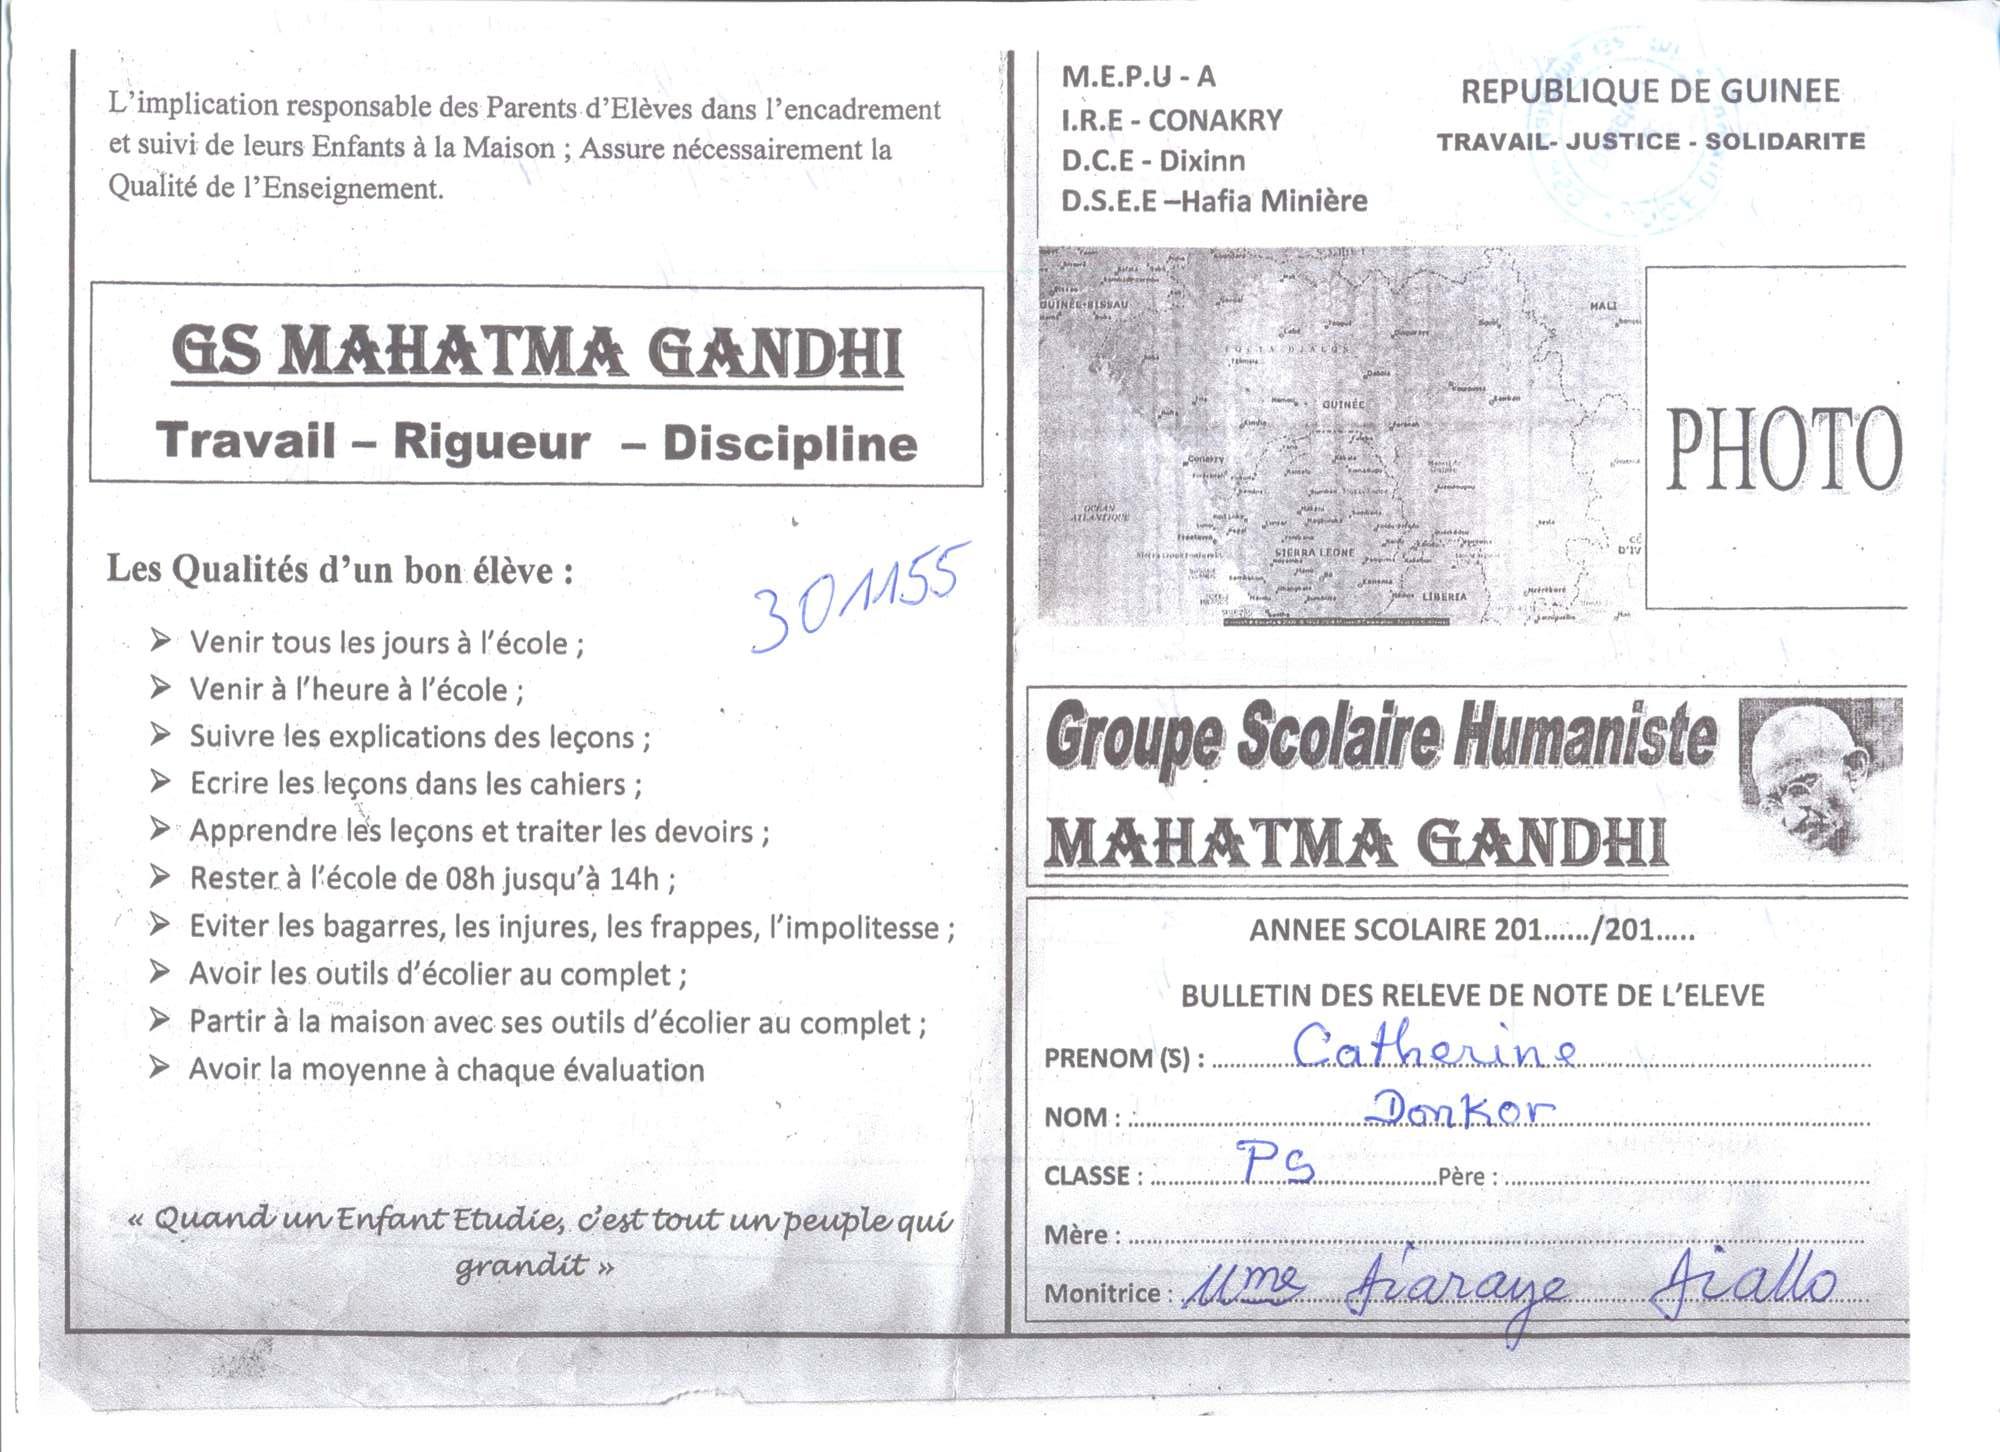 L'implication responsable des Parents d'Elèves dans l'encadrement
et suivi de leurs Enfants à la Maison ; Assure nécessairement la
Qualité de l'Enseignement.
GS MAHATMA GANDHI
Travail – Rigueur – Discipline
Les Qualités d'un bon élève :
301155
➢ Venir tous les jours à l'école ;
➢ Venir à l'heure à l'école ;
➢ Suivre les explications des leçons ;
➢ Ecrire les leçons dans les cahiers ;
➢ Apprendre les leçons et traiter les devoirs ;
➢ Rester à l'école de 08h jusqu'à 14h ;
➢ Eviter les bagarres, les injures, les frappes, l'impolitesse ;
➢ Avoir les outils d'écolier au complet ;
➢ Partir à la maison avec ses outils d'écolier au complet ;
➢ Avoir la moyenne à chaque évaluation
« Quand un Enfant Etudie, c'est tout un peuple qui
grandit »
M.E.P.U - A
I.R.E - CONAKRY
D.C.E - Dixinn
D.S.E.E –Hafia Minière
REPUBLIQUE DE GUINEE
TRAVAIL- JUSTICE - SOLIDARITE
GUINÉE-BISSAU
MALI
GUINÉE
Conakry
OCÉAN
ATLANTIQUE
SIERRA LEONE
LIBERIA
CÔ
D'IV
PHOTO
Groupe Scolaire Humaniste
MAHATMA GANDHI
ANNEE SCOLAIRE 201....../201.....
BULLETIN DES RELEVE DE NOTE DE L'ELEVE
PRENOM (S) : Catherine
NOM : Donkor
CLASSE : PS Père :
Mère :
Monitrice : Mme Diaraye Diallo